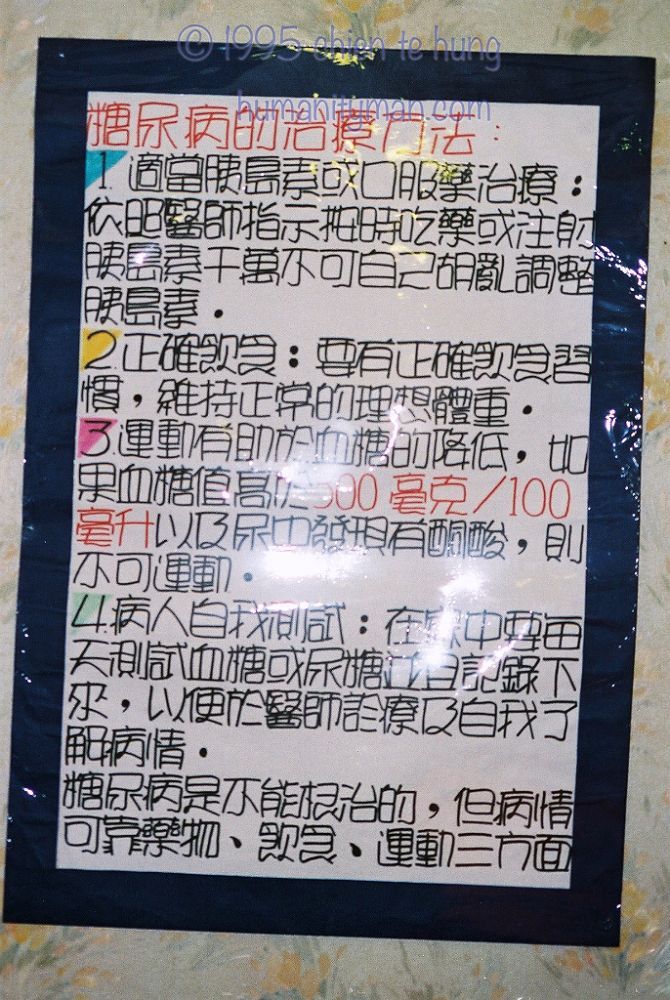 © 1995 chien te hung
humanityman.com
糖尿病的治療方法：
1.適當胰島素或口服藥治療：
依照醫師指示按時吃藥或注射
胰島素千萬不可自己胡亂調整
胰島素．
2.正確飲食：要有正確飲食習
慣，維持正常的理想體重．
3.運動有助於血糖的降低，如
果血糖值高於300毫克/100
毫升以及尿中發現有酮酸，則
不可運動．
4.病人自我測試：在家中要每
天測試血糖或尿糖並且記錄下
來，以便於醫師診療及自我了
解病情．
糖尿病是不能根治的，但病情
可靠藥物、飲食、運動三方面